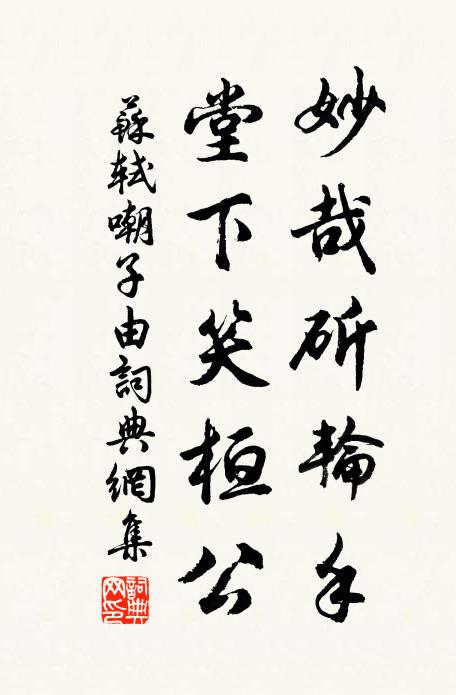 妙哉斫輪手
堂下笑桓公
蘇軾嘲子由詞典網集
詞典網印